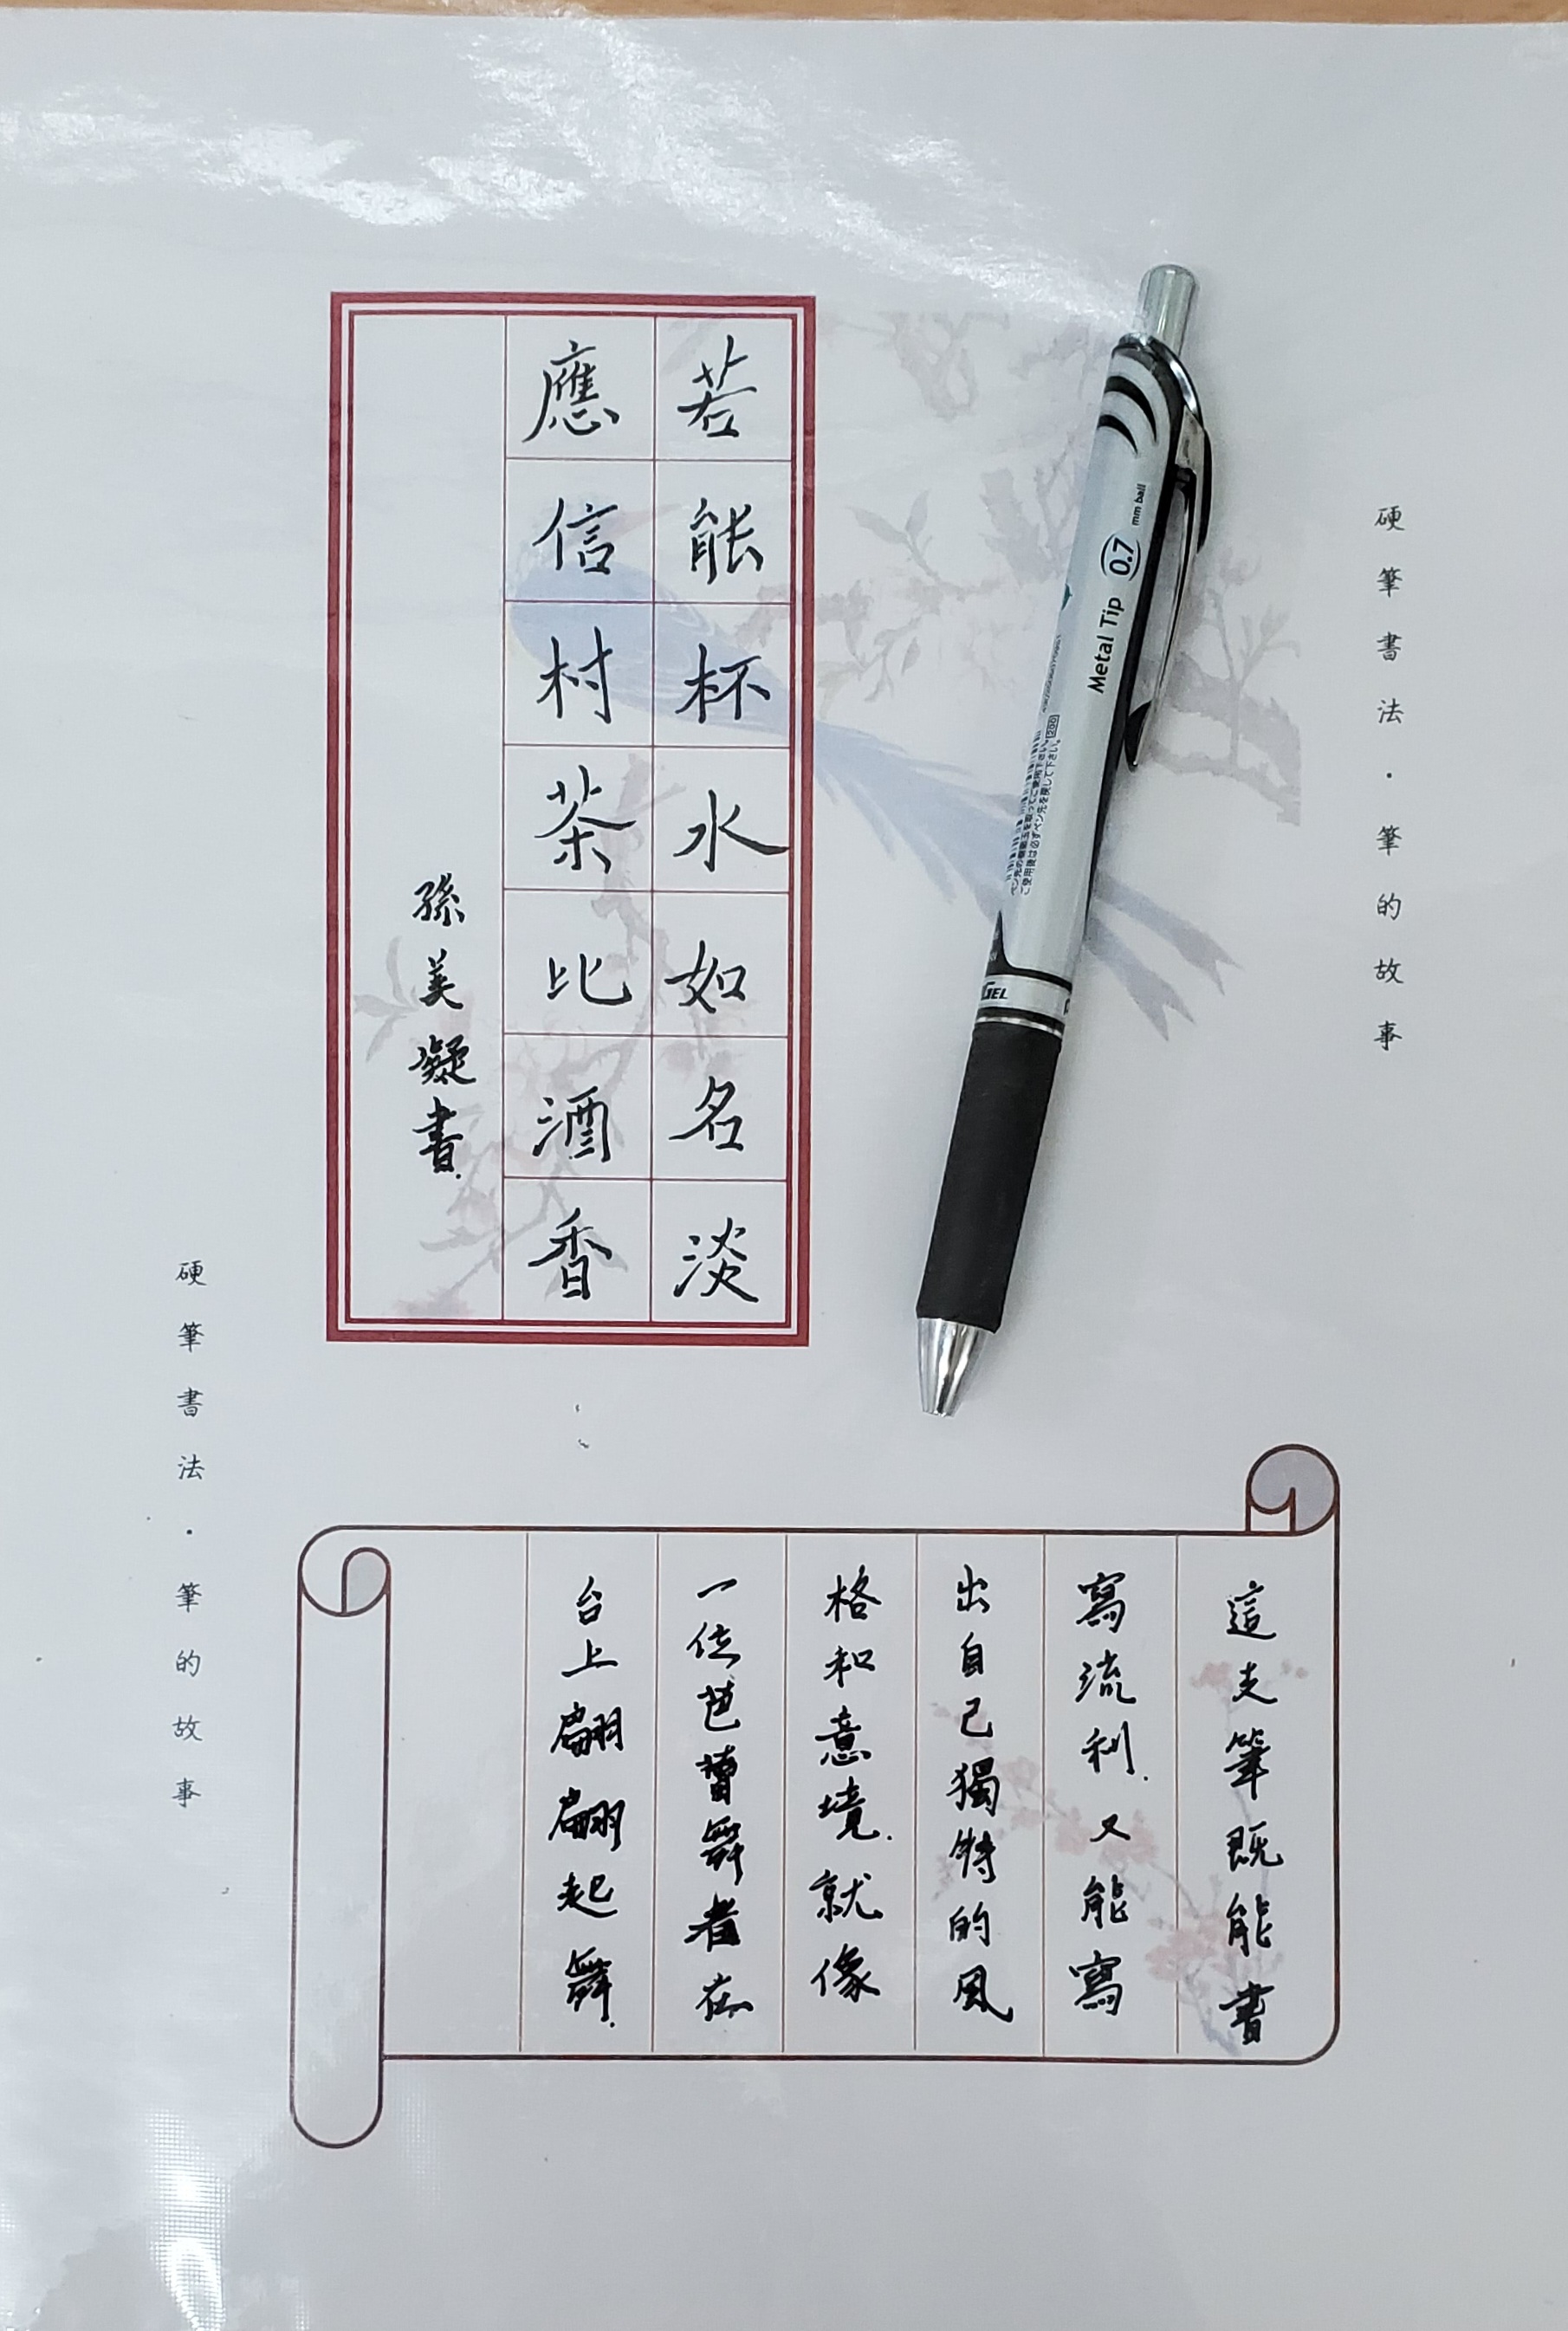 硬筆書法·筆的故事
若能杯水如名淡
應信村茶比酒香
孫美凝書.
Metal Tip 0.7 mm ball
GEL
這支筆既能書
寫流利.又能寫
出自己獨特的風
格和意境.就像
一位芭蕾舞者在
台上翩翩起舞.
硬筆書法·筆的故事